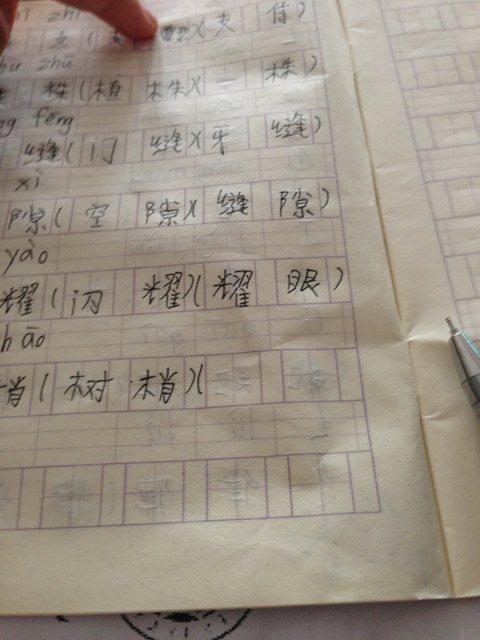 zhī
支(支 )(支付)
zhū zhū
株 株(植株)(一株)
fèng
缝(门缝)(牙缝)
xì
隙(空隙)(缝隙)
yào
耀(闪耀)(耀眼)
shāo
梢(树梢)(